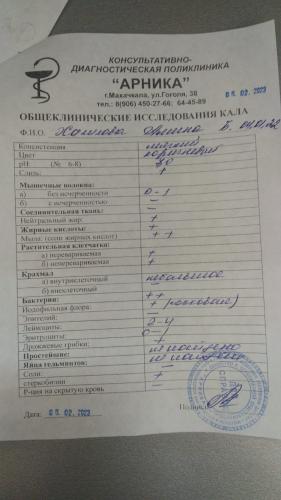 КОНСУЛЬТАТИВНО-
ДИАГНОСТИЧЕСКАЯ ПОЛИКЛИНИКА
"АРНИКА"
г.Махачкала, ул.Гоголя, 38
тел.: 8(906) 450-27-66; 64-45-89
02. 2023
ОБЩЕКЛИНИЧЕСКИЕ ИССЛЕДОВАНИЯ КАЛА
Ф.И.О. Б. 04.01.22
Консистенция мягкий
Цвет коричневый
рН: (№ 6-8)
Слизь: +
Мышечные волокна:
а) без исчерченности 0-1
б) с исчерченностью —
Соединительная ткань: —
Нейтральный жир: +
Жирные кислоты: +
Мыла: (соли жирных кислот) ++
Растительная клетчатка:
а) перевариваемая +
б) неперевариваемая +
Крахмал
а) внутриклеточный небольшое
б) внеклеточный —
Бактерии: ++
Иодофильная флора: +
Эпителий: —
Лейкоциты: 2-4
Эритроциты: 0-1
Дрожжевые грибки: +
Простейшие: не найдено
Яйца гельминтов: не найдено
Соли: —
стеркобилин +
Р-ция на скрытую кровь —
Дата: 02. 2023
Подпись